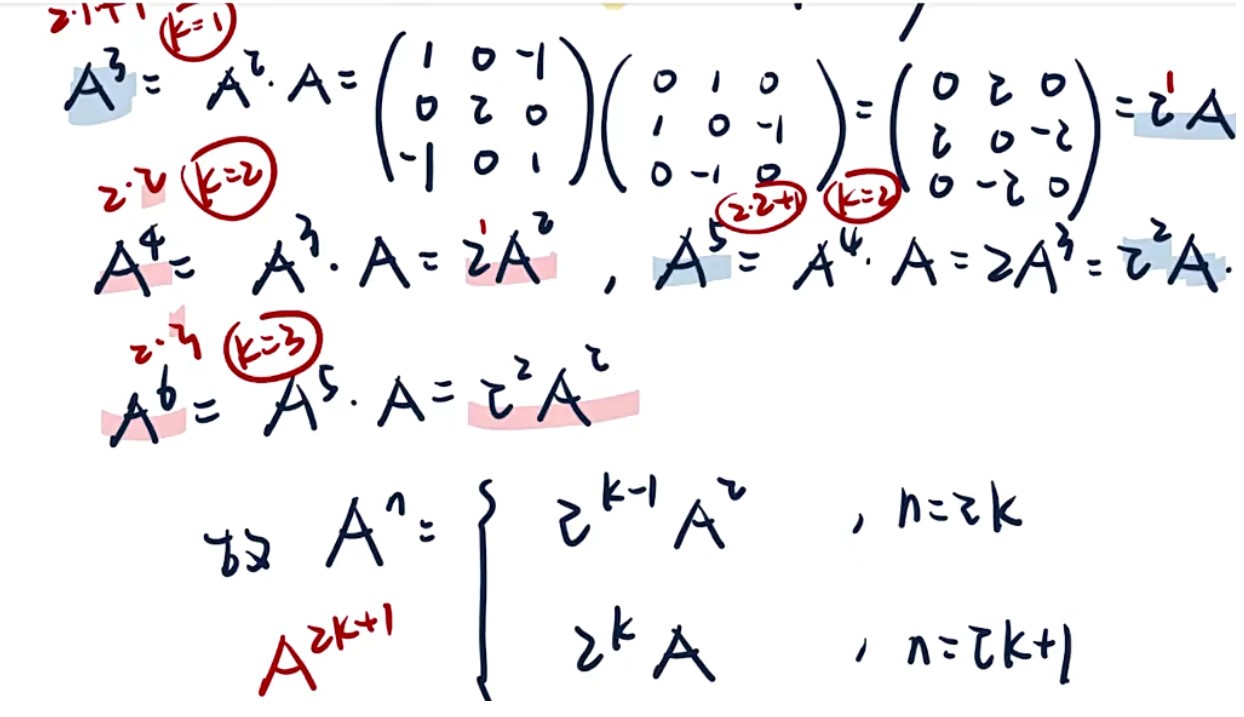 2·1+1 (k=1)
A³ = A²·A = (1 0 -1; 0 2 0; -1 0 1)(0 1 0; 1 0 -1; 0 -1 0) = (0 2 0; 2 0 -2; 0 -2 0) = 2¹A
2·2 (k=2) (2·2+1) (k=2)
A⁴ = A³·A = 2¹A² , A⁵ = A⁴·A = 2A³ = 2²A.
2·3 (k=3)
A⁶ = A⁵·A = 2²A²
故 Aⁿ = { 2^(k-1) A² , n=2k
A^(2k+1) 2^k A , n=2k+1